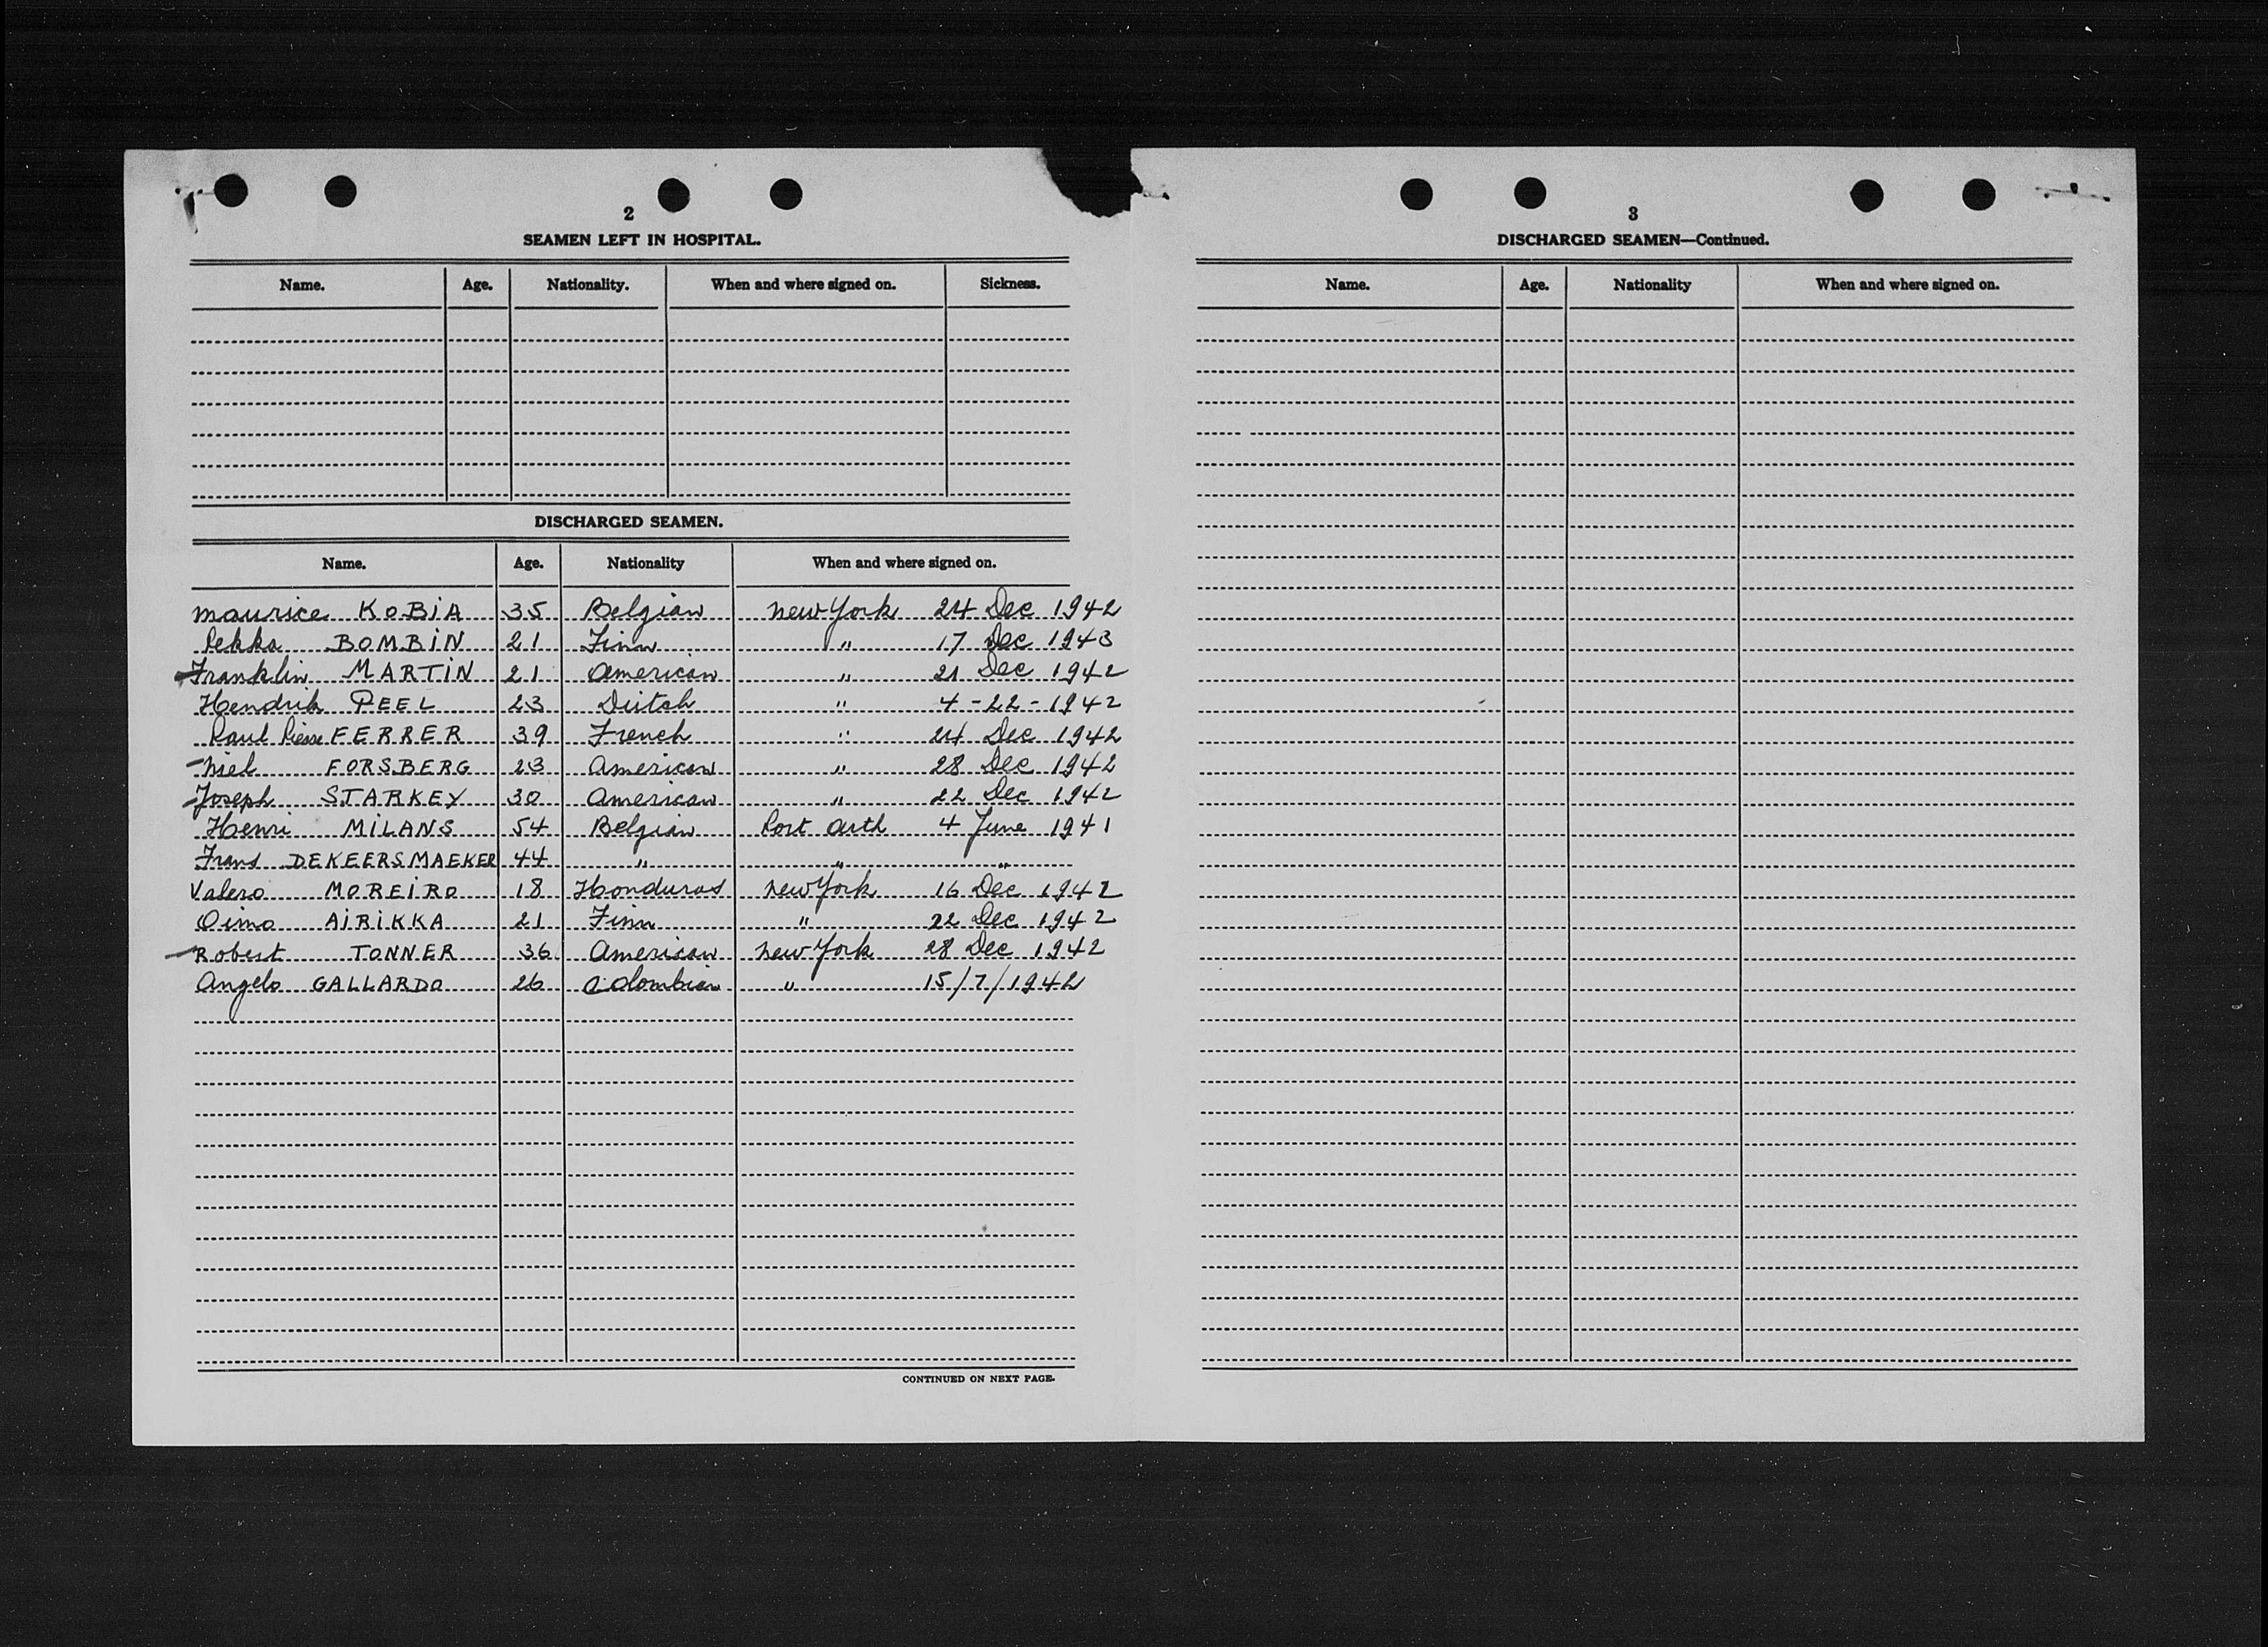 2
SEAMEN LEFT IN HOSPITAL.
Name. Age. Nationality. When and where signed on. Sickness.
DISCHARGED SEAMEN.
Name. Age. Nationality When and where signed on.
Maurice KOBIA 35 Belgian New York 24 Dec 1942
Pekka BOMBIN 21 Finn " 17 Dec 1943
Franklin MARTIN 21 American " 21 Dec 1942
Hendrik PEEL 23 Dutch " 4-22-1942
Paul Pierre FERRER 39 French " 24 Dec 1942
Niel FORSBERG 23 American " 28 Dec 1942
Joseph STARKEY 30 American " 22 Dec 1942
Henri MILANS 54 Belgian Port Arth 4 June 1941
Frans DEKEERSMAEKER 44 " " "
Valero MOREIRO 18 Honduras New York 16 Dec 1942
Oimo AIRIKKA 21 Finn " 22 Dec 1942
Robert TONNER 36 American New York 28 Dec 1942
Angelo GALLARDO 26 Colombian " 15/7/1942
CONTINUED ON NEXT PAGE.
3
DISCHARGED SEAMEN—Continued.
Name. Age. Nationality When and where signed on.